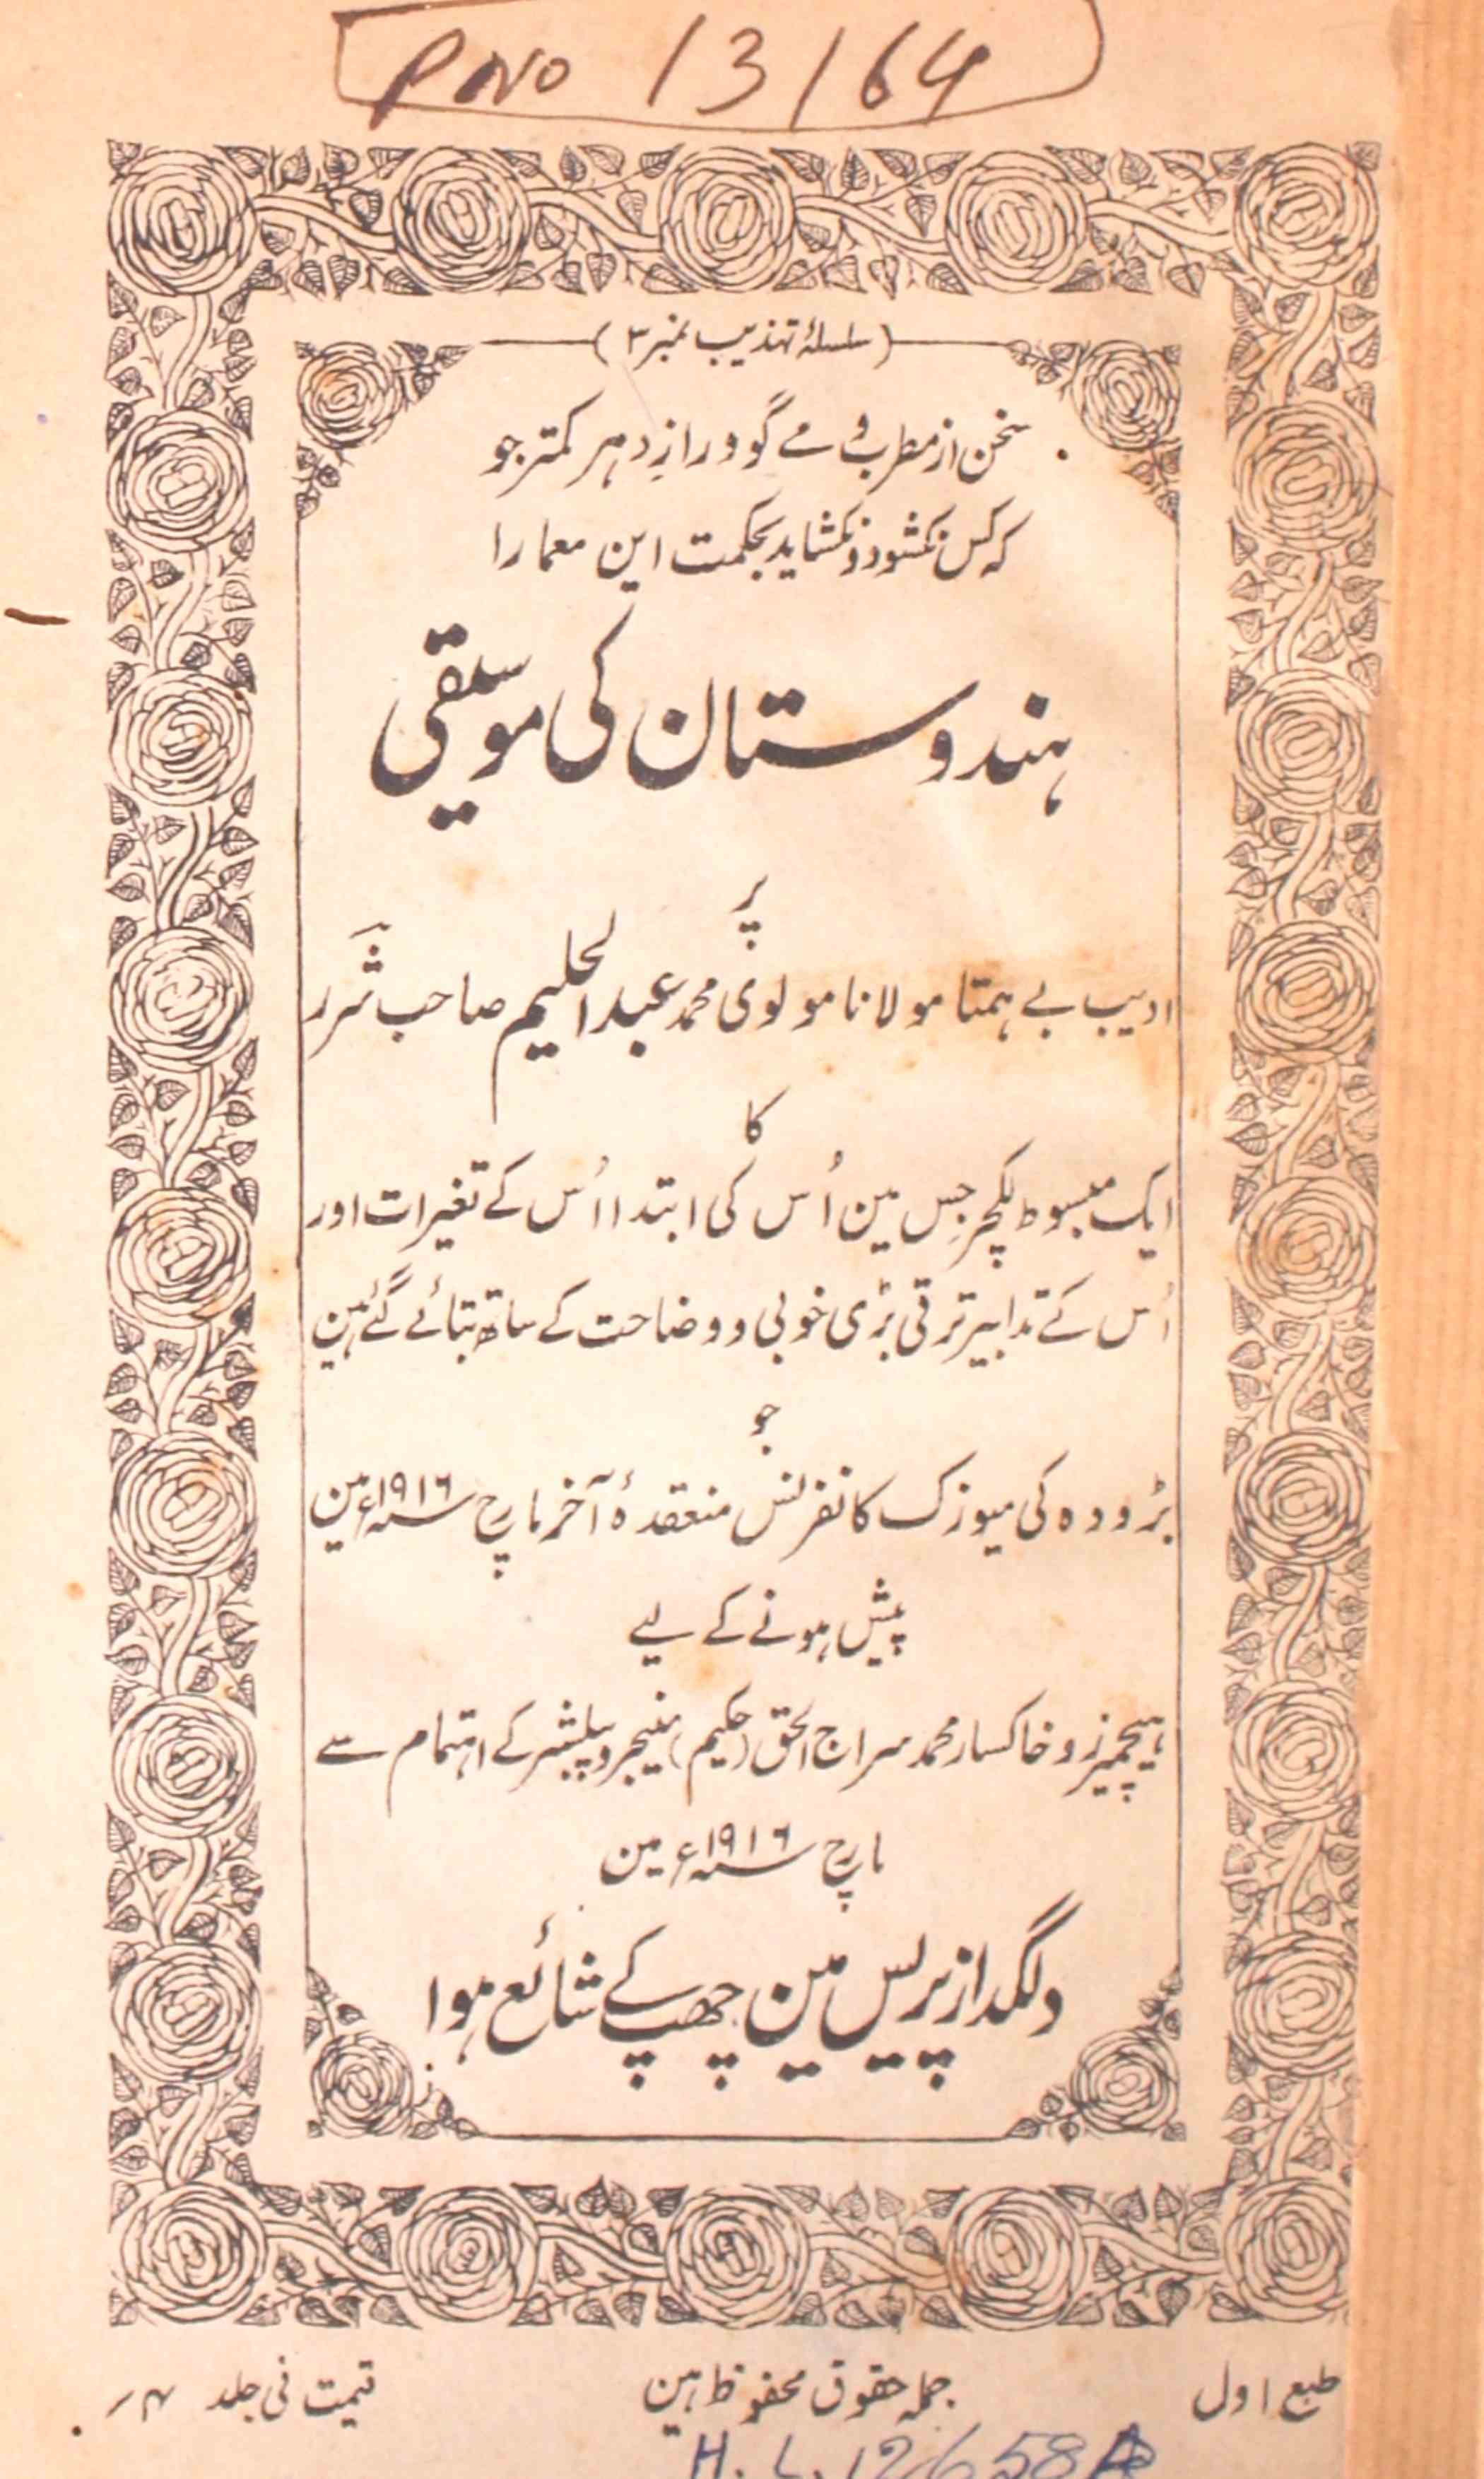 P NO 13164
(سلسلۂ تہذیب نمبر ۳)
سخن از مطرب و مے گو و راز دہر کمتر جو
کہ کس نکشود و نکشاید بحکمت این معما را
ہندوستان کی موسیقی
پر
ادیب بے ہمتا مولانا مولوی محمد عبدالحلیم صاحب شرر
کا
ایک مبسوط لکچر جس مین اُس کی ابتدا اُس کے تغیرات اور
اُس کے تدابیر ترقی بڑی خوبی و وضاحت کے ساتھ بتائے گئے ہین
جو
بڑودہ کی میوزک کانفرنس منعقدۂ آخر مارچ سنہ ۱۹۱۶ء مین
پیش ہونے کے لیے
ہیچمیرز و خاکسار محمد سراج الحق (حکیم) منیجر و پبلشر کے اہتمام سے
مارچ سنہ ۱۹۱۶ء مین
دلگداز پریس مین چھپ کے شائع ہوا
طبع اول جملہ حقوق محفوظ ہین قیمت فی جلد ۴؍
H. L. 12658